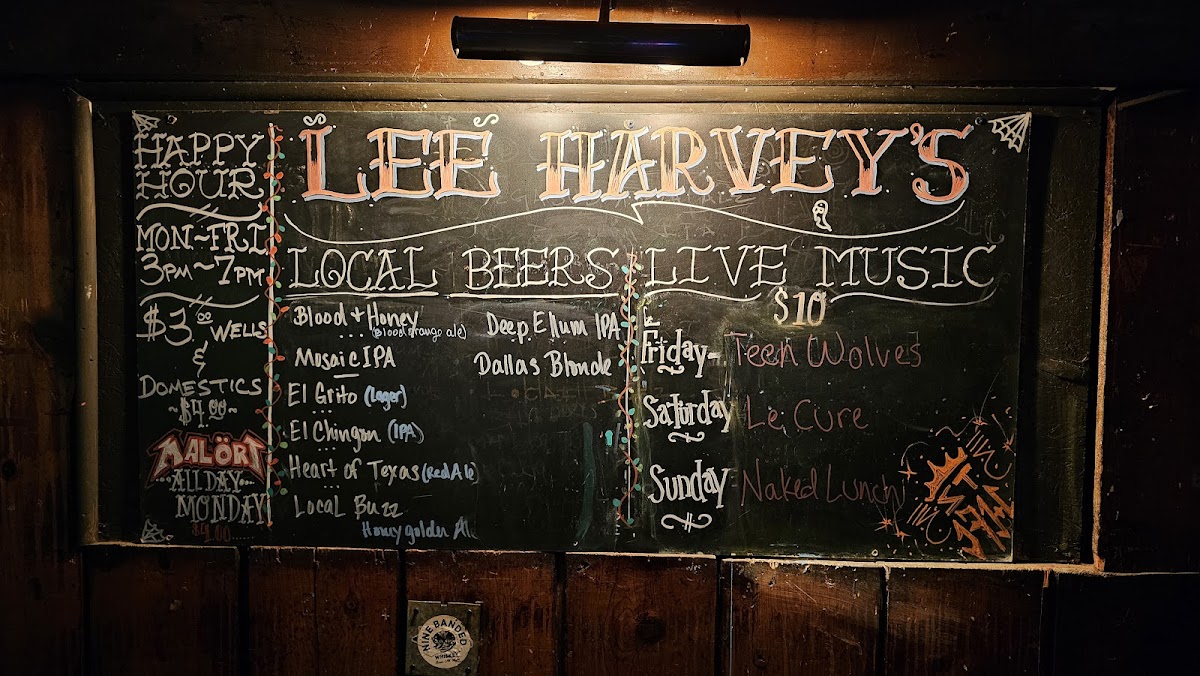 LEE HARVEY'S
HAPPY
HOUR
MON~FRI
3PM~7PM
$3.00 WELLS
&
DOMESTICS
~$4.00~
MALÖRT
ALL DAY
MONDAY
$4.00
LOCAL BEERS
Blood + Honey
(Blood orange ale)
Mosaic IPA
El Grito (Lager)
El Chingon (IPA)
Heart of Texas (Red Ale)
Local Buzz
Honey golden Al
Deep Ellum IPA
Dallas Blonde
LIVE MUSIC
$10
Friday- Teen Wolves
Saturday Le Cure
Sunday Naked Lunch
NINE BANDED
WHISKEY